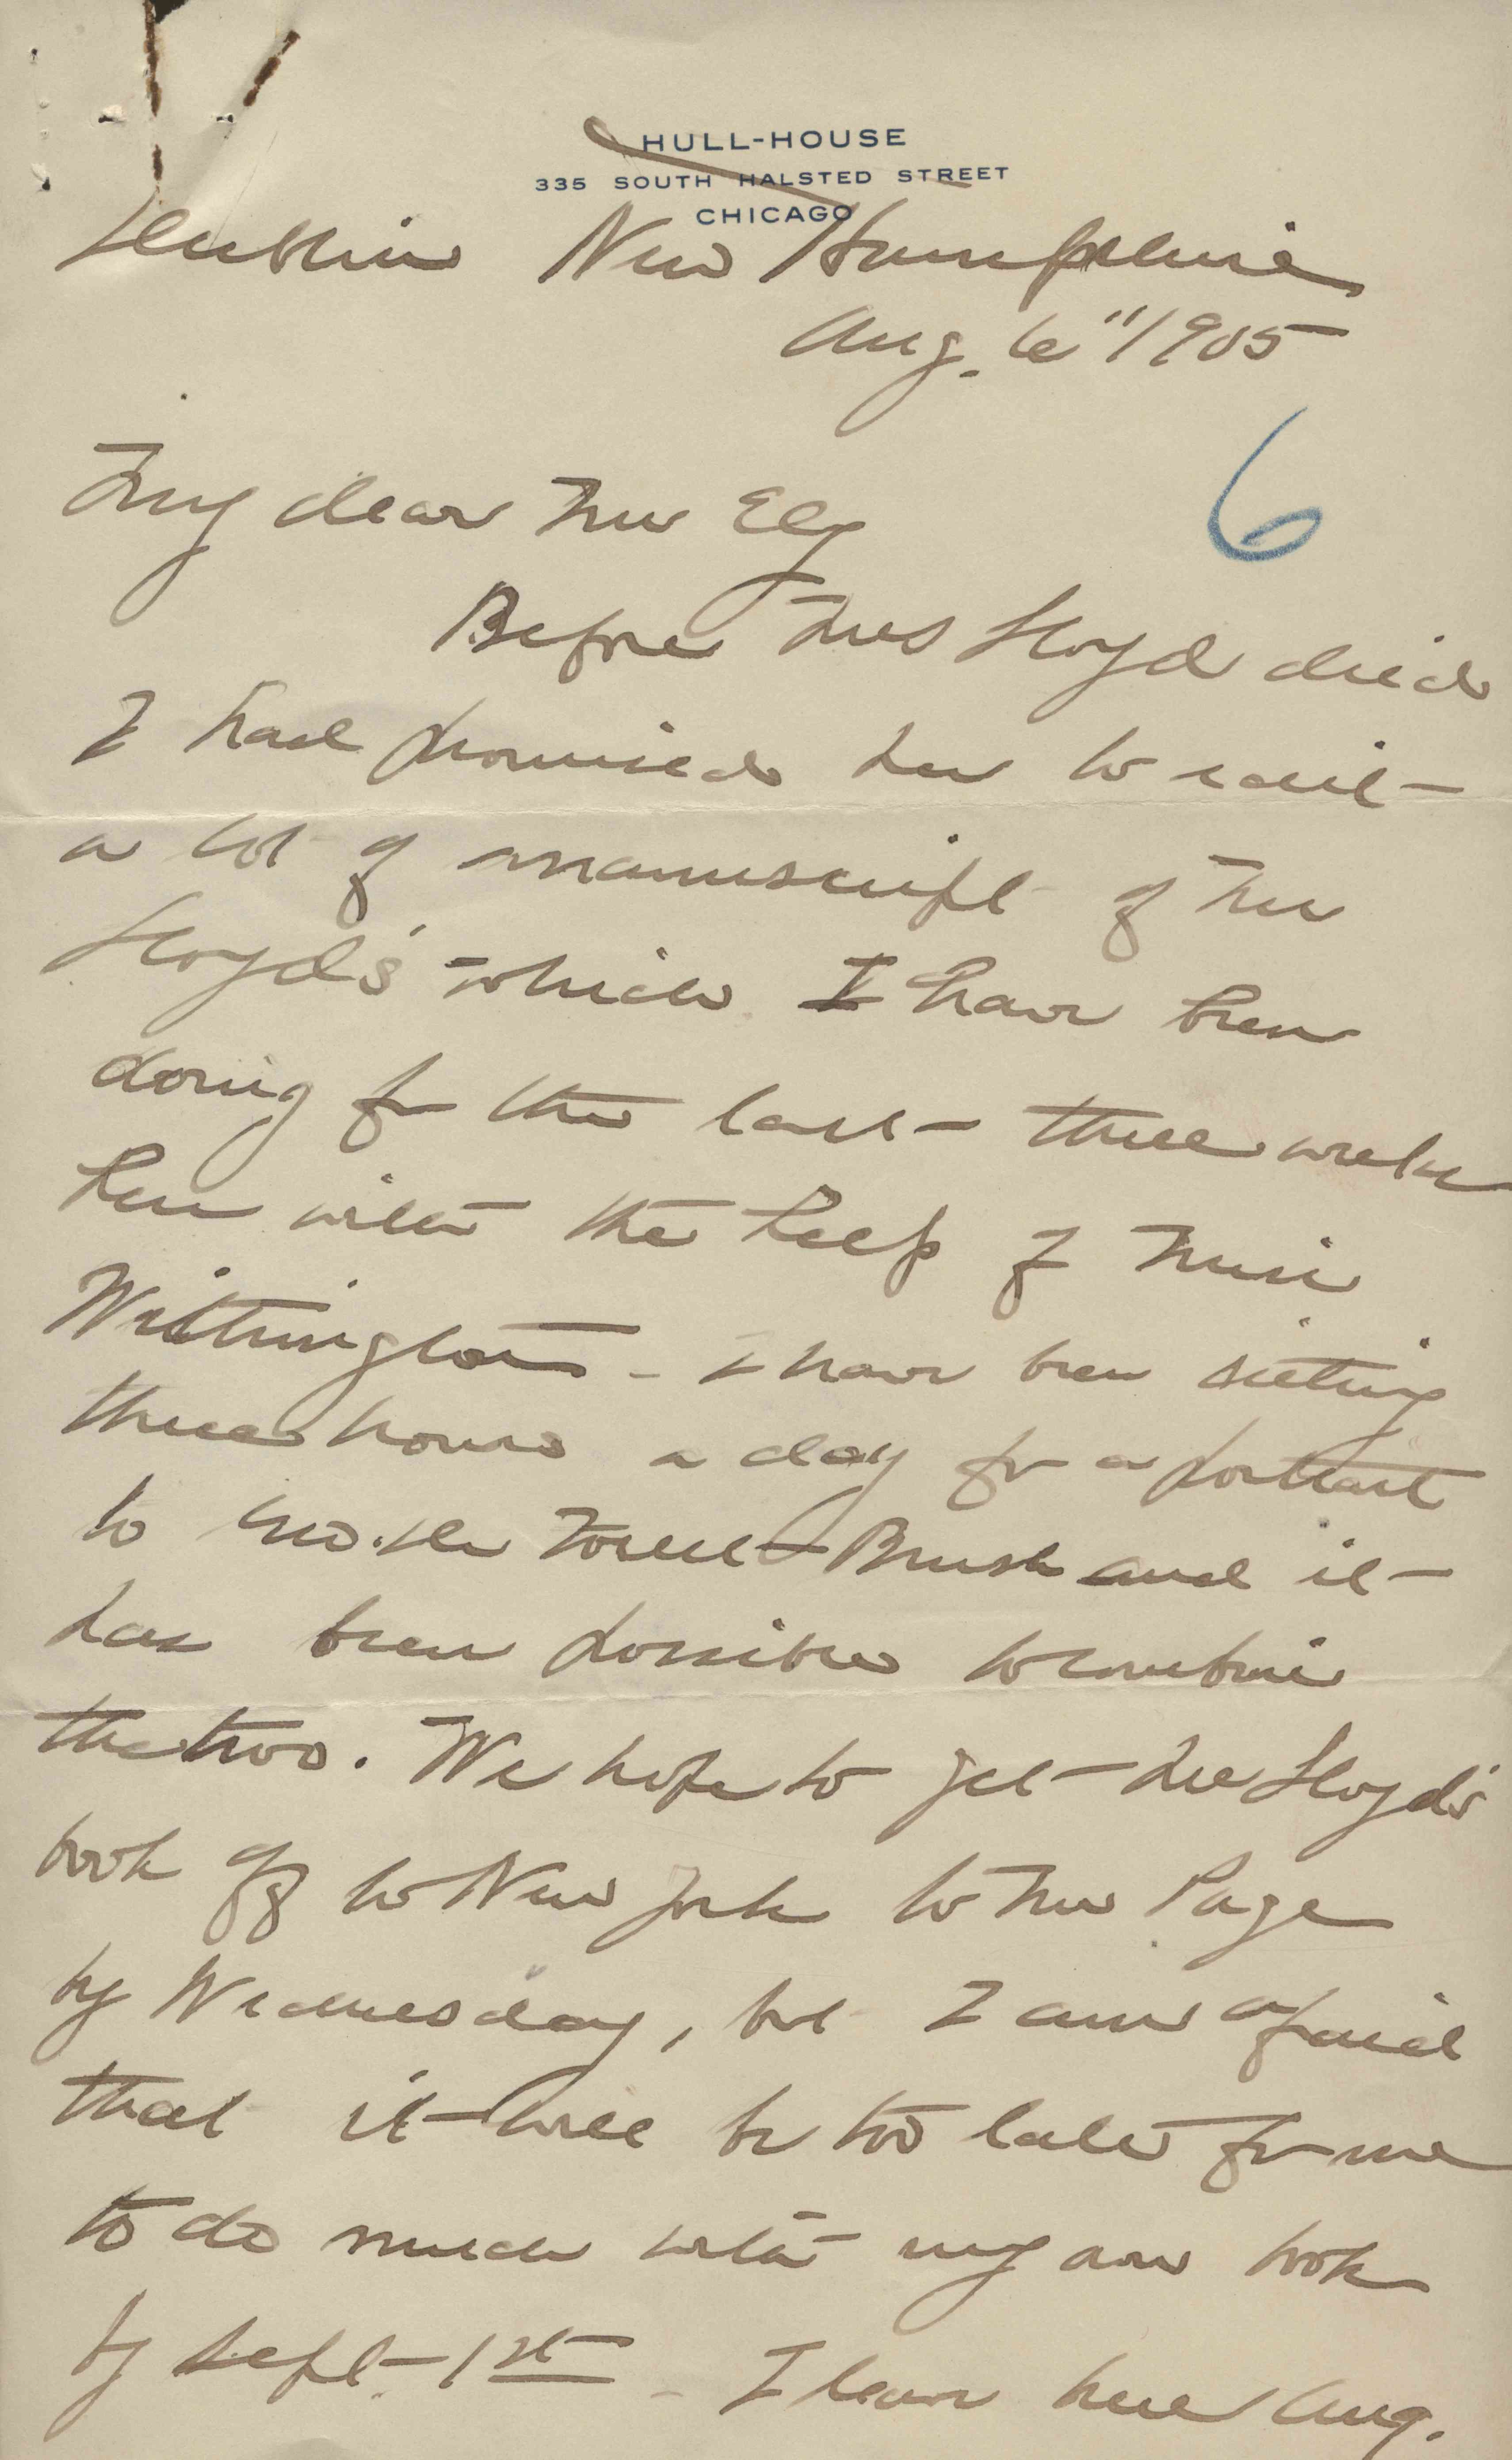 HULL-HOUSE
335 SOUTH HALSTED STREET
CHICAGO
Dublin New Hampshire
Aug. 6" 1905
6
My dear Mr Ely
Before Mrs Lloyd died
I had promised her to edit
a lot of manuscript of Mr
Lloyd's which I have been
doing for the last three weeks
here with the help of Miss
Withington - I have been sitting
three hours a day for a portrait
to Brush and it
has been possible to combine
the two. We hope to get Mr Lloyd's
book off to New York to Mr Page
by Wednesday, but I am afraid
that it will be too late for me
to do much with my own book
by Sept. 1st - I leave here Aug.